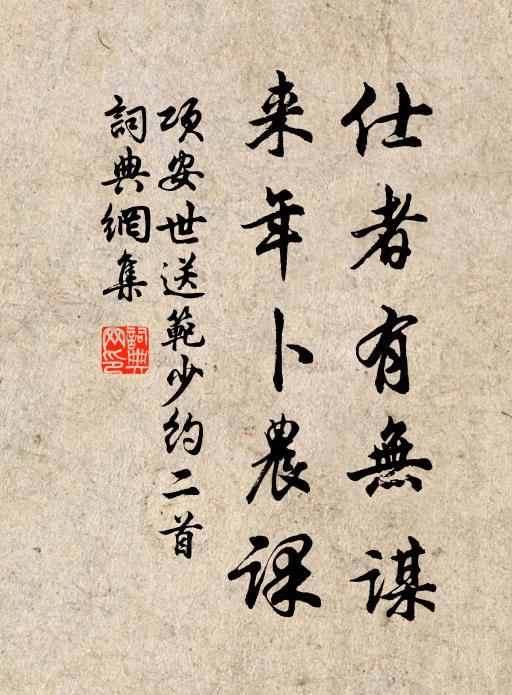 仕者有無謀
来年卜農課
項安世送範少約二首
詞典網集
詞典网印